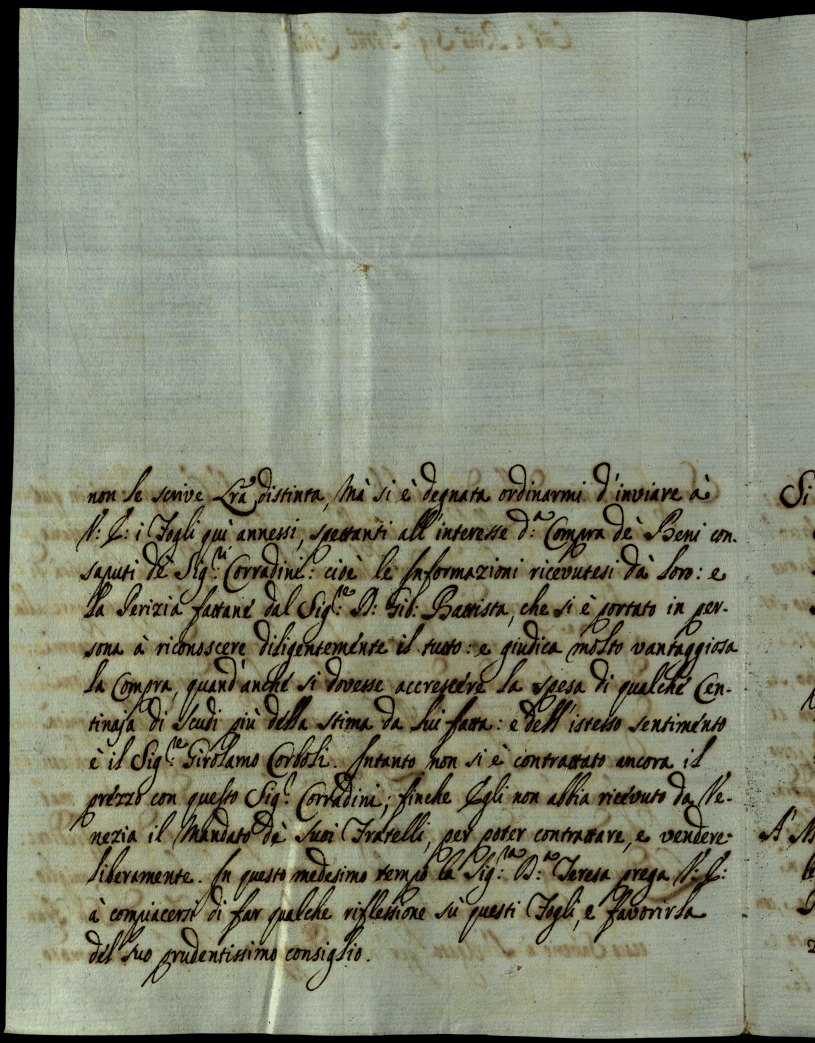 non le scrive Lrã distinta, Mà si è degnata ordinarmi d'inviare à
V: E: i Fogli quì annessi, spettanti all'interesse d:ª Compra de' Beni con-
saputi de' Sig:ri Corradini: cioè le Informazioni ricevutesi dà loro: e
la Perizia fattane dal Sig:re D: Gio: Battista, che si è portato in per-
sona à riconoscere diligentemente il tutto: e giudica molto vantaggiosa
la Compra, quand'anche si dovesse accrescere la spesa di qualche Cen-
tinaja di scudi più della stima da lui fatta: e dell'istesso sentimento
è il Sig:re Girolamo Corboli. Intanto non si è contrattato ancora il
prezzo con questo Sig:r Corradini, finche Egli non abbia ricevuto da Ve-
nezia il Mandato de' suoi Fratelli, per poter contrattare, e vendere
liberamente. In questo medesimo tempo la Sig:ra D:ª Teresa prega V: E:
à compiacersi di far qualche riflessione sù questi Fogli, e favorirla
del suo prudentissimo consiglio.
Si
A'